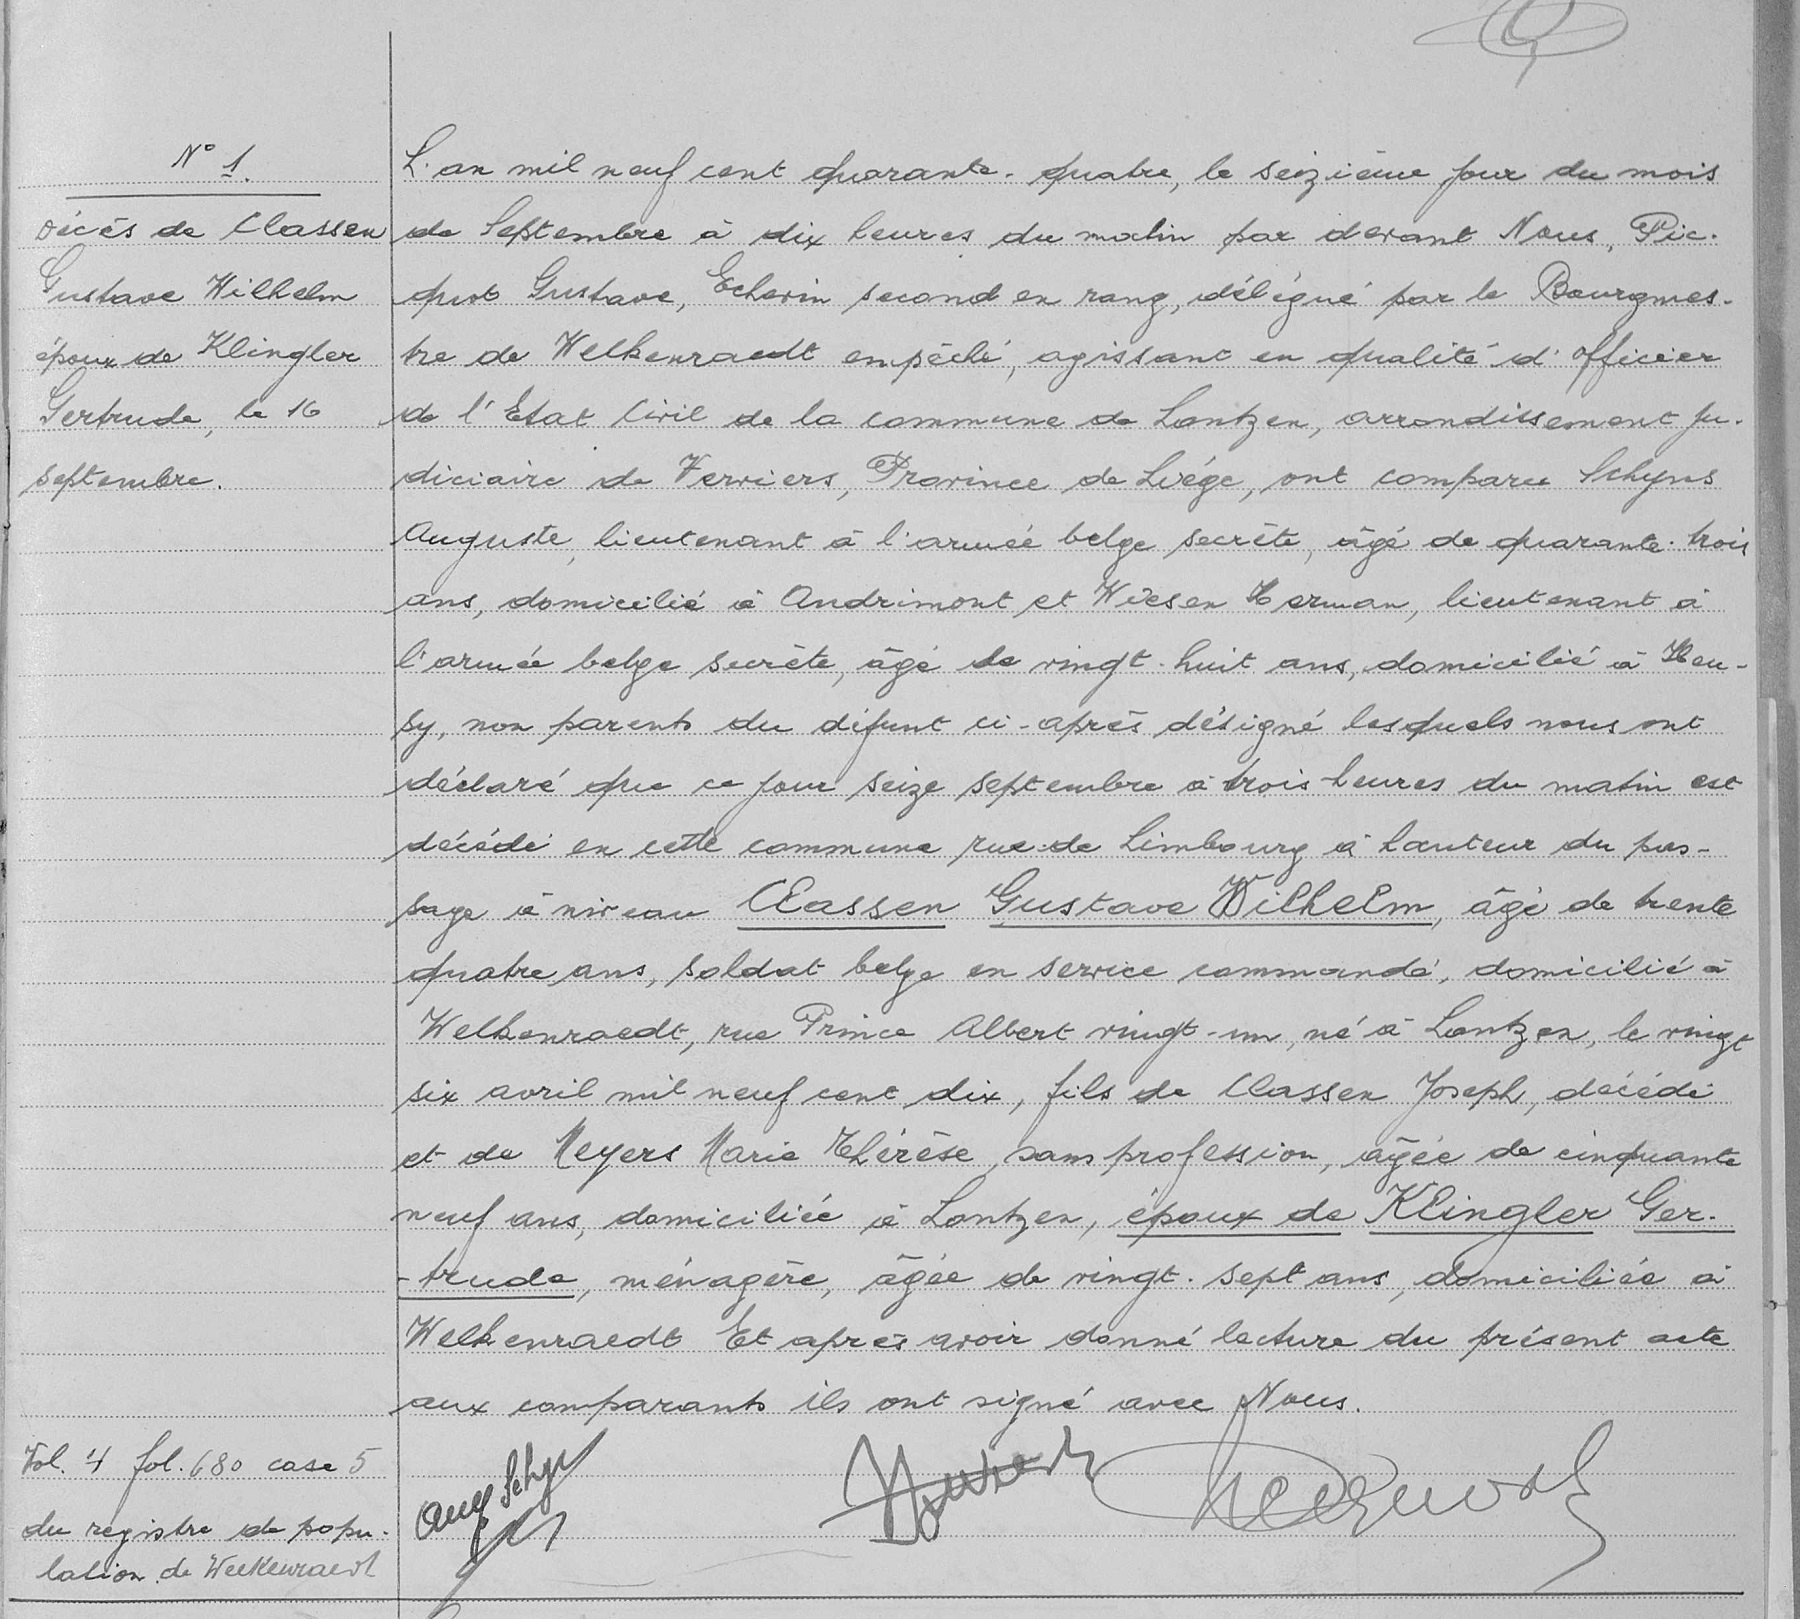 N° 1.
Décès de Classen
Gustave Wilhelm
époux de Klingler
Gertrude, le 16
septembre.
L'an mil neuf cent quarante-quatre, le seizième jour du mois
de Septembre à dix heures du matin par devant Nous, Pic-
quot Gustave, Echevin second en rang, délégué par le Bourgmes-
tre de Welkenraedt empêché, agissant en qualité d'officier
de l'Etat Civil de la commune de Lontzen, arrondissement ju-
diciaire de Verviers, Province de Liége, ont comparu Schyns
Auguste, lieutenant à l'armée belge secrète, âgé de quarante-trois
ans, domicilié à Andrimont et Wiesen Herman, lieutenant à
l'armée belge secrète, âgé de vingt-huit ans, domicilié à Heu-
sy, non parents du défunt ci-après désigné lesquels nous ont
déclaré que ce jour seize septembre à trois heures du matin est
décédé en cette commune rue de Limbourg à hauteur du pas-
sage à niveau Classen Gustave Wilhelm, âgé de trente
quatre ans, soldat belge en service commandé, domicilié à
Welkenraedt, rue Prince Albert vingt-un, né à Lontzen, le vingt
six avril mil neuf cent dix, fils de Classen Joseph, décédé
et de Meyers Marie Thérèse, sans profession, âgée de cinquante
neuf ans, domiciliée à Lontzen, époux de Klingler Ger-
-trude, ménagère, âgée de vingt-sept ans, domiciliée à
Welkenraedt Et après avoir donné lecture du présent acte
aux comparants ils ont signé avec Nous.
Vol. 4 fol. 680 case 5
du registre de popu-
lation de Welkenraedt
Aug Schyns